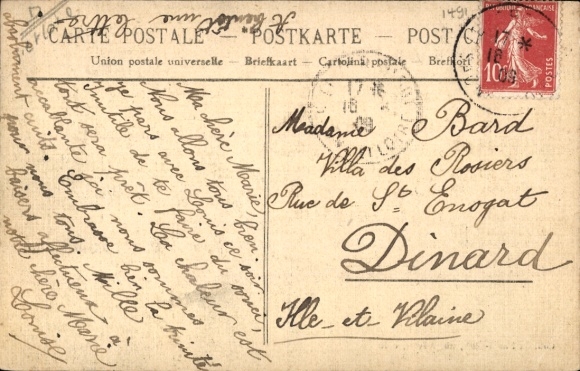 A bientôt une lettre
1491
CARTE POSTALE — POSTKARTE — POST C
Union postale universelle — Briefkaart — Cartolina postale — Brefkort
RÉPUBLIQUE FRANÇAISE
10
POSTES
17
18
09
17
18
09
LOIRE
Ma chère Marie,
Nous allons tous bien.
je pars avec Louis ce soir
Inutile de te faire du souci,
tout sera prêt. La chaleur est
accablante j'ai
nous sommes
absolument cuits. Embrasse bien la
pour nous tous. Mille
baisers affectueux à
notre chère Marie
Louise
Madame Bard
Villa des Rosiers
Rue de St Enogat
Dinard
Ille-et-Vilaine